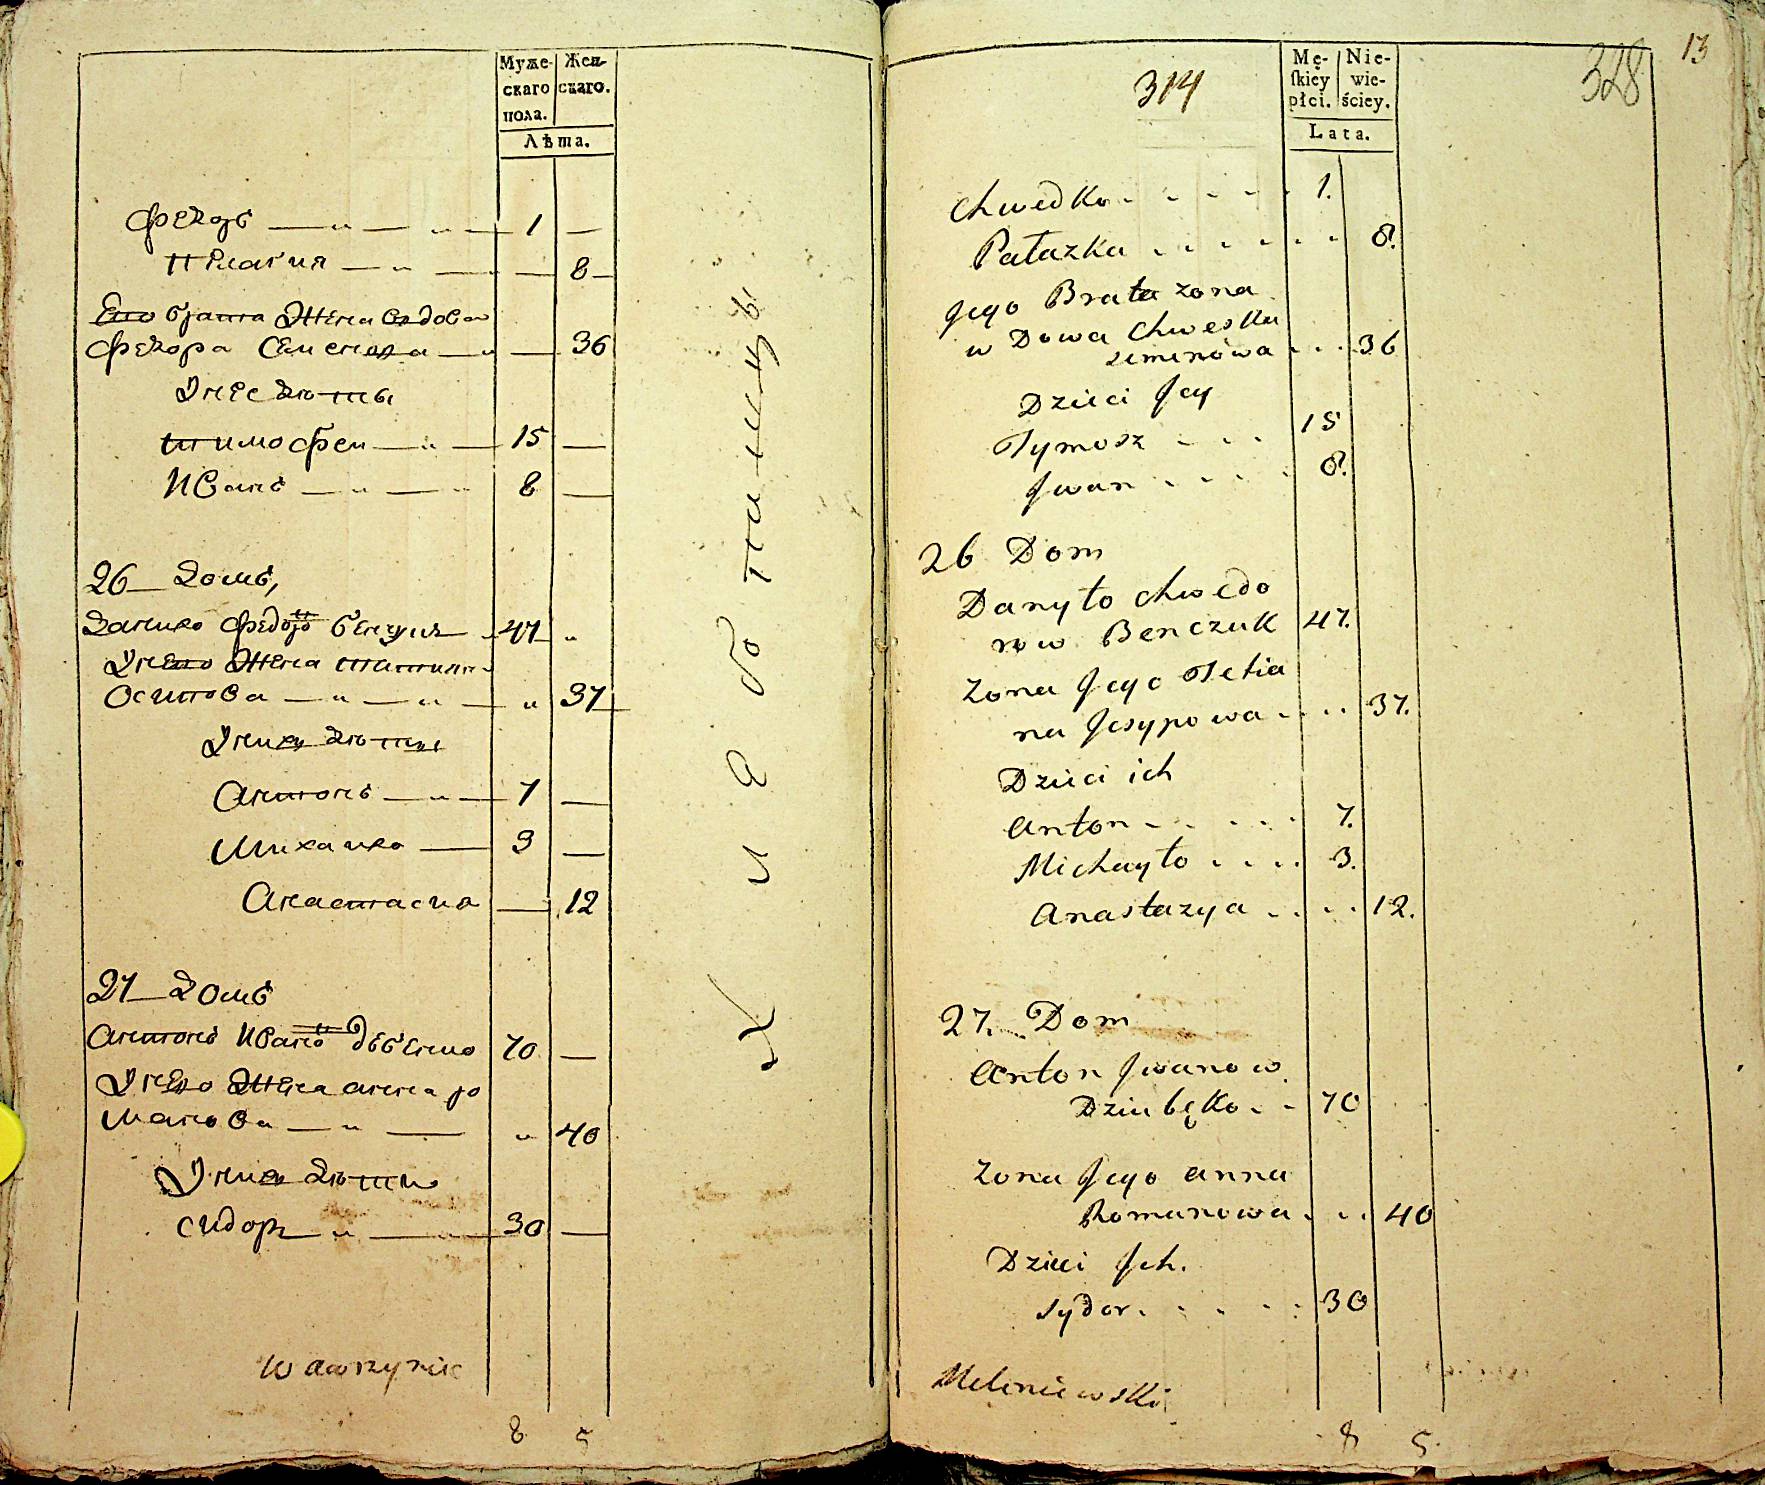 Муже-
скаго
пола.
Жен-
скаго.
Лѣта.
Федоръ — „ — „ — 1 —
Пелагия — „ — — 8 —
Его брата жена вдова
Федора Семенова — „ — 36
У нее дѣти
Тимофеи — „ — 15 —
Иванъ — „ — „ 8 —
26 Домъ,
Данило Федоро Бенчукъ 47 „
У него жена Татияна
Осипова — „ — „ — „ 37
У них дѣти
Антонъ — „ — 7 —
Михаило — 3 —
Анастасия — 12
27 Домъ
Антонъ Ивано 70 —
У него жена Анна Ро
манова — „ — „ 40
У них дѣти
Сидоръ — „ — „ 30 —
Wawrzynic
8 5
314
328
13
Mę-
skiey
płci.
Nie-
wie-
ściey.
Lata.
Chwedko . . . . . . 1.
Pałazka . . . . . . . 8.
Jego Brata zona
w Dowa Chweska
semenowa . . . 36
Dzieci Jey
Tymosz . . . 15
Jwan . . . . 8.
26 Dom
Danyło Chwedo
row Benczuk 47.
Zona Jego Tetia
na Jesypowa . . . . 37.
Dzieci ich
Anton . . . . . 7.
Michayło . . . . 3.
Anastazya . . . . 12.
27. Dom
Anton Jwanow
Dziubęko . . 70
Zona Jego Anna
Romanowa . . . 40
Dzieci Jch.
Sydor . . . . . 30
Meleniewski
8 5